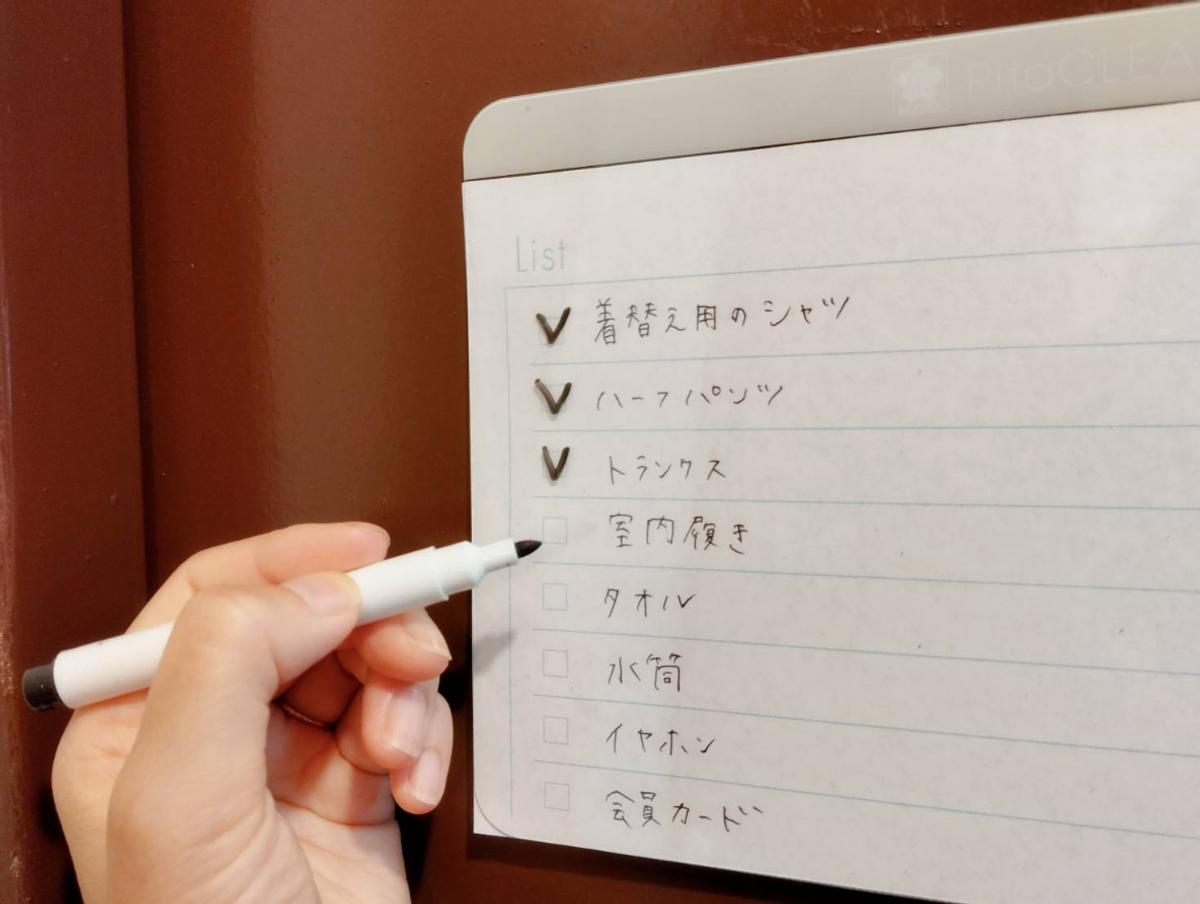 PitaCLEA
List
着替え用のシャツ
ハーフパンツ
トランクス
室内履き
タオル
水筒
イヤホン
会員カード